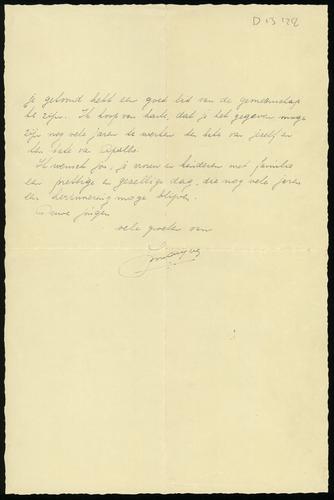 D 13 '28
je getoond hebt een goed lid van de gemeenschap
te zijn. Ik hoop van harte, dat je het gegeven moge
zijn nog vele jaren te werken ten bate van jezelf en
ten bate van Apollo.
Ik wensch jou, je vrouw en kinderen met familie
een prettige en gezellige dag, die nog vele jaren
een herinnering moge blijven.
jongen
vele groeten van